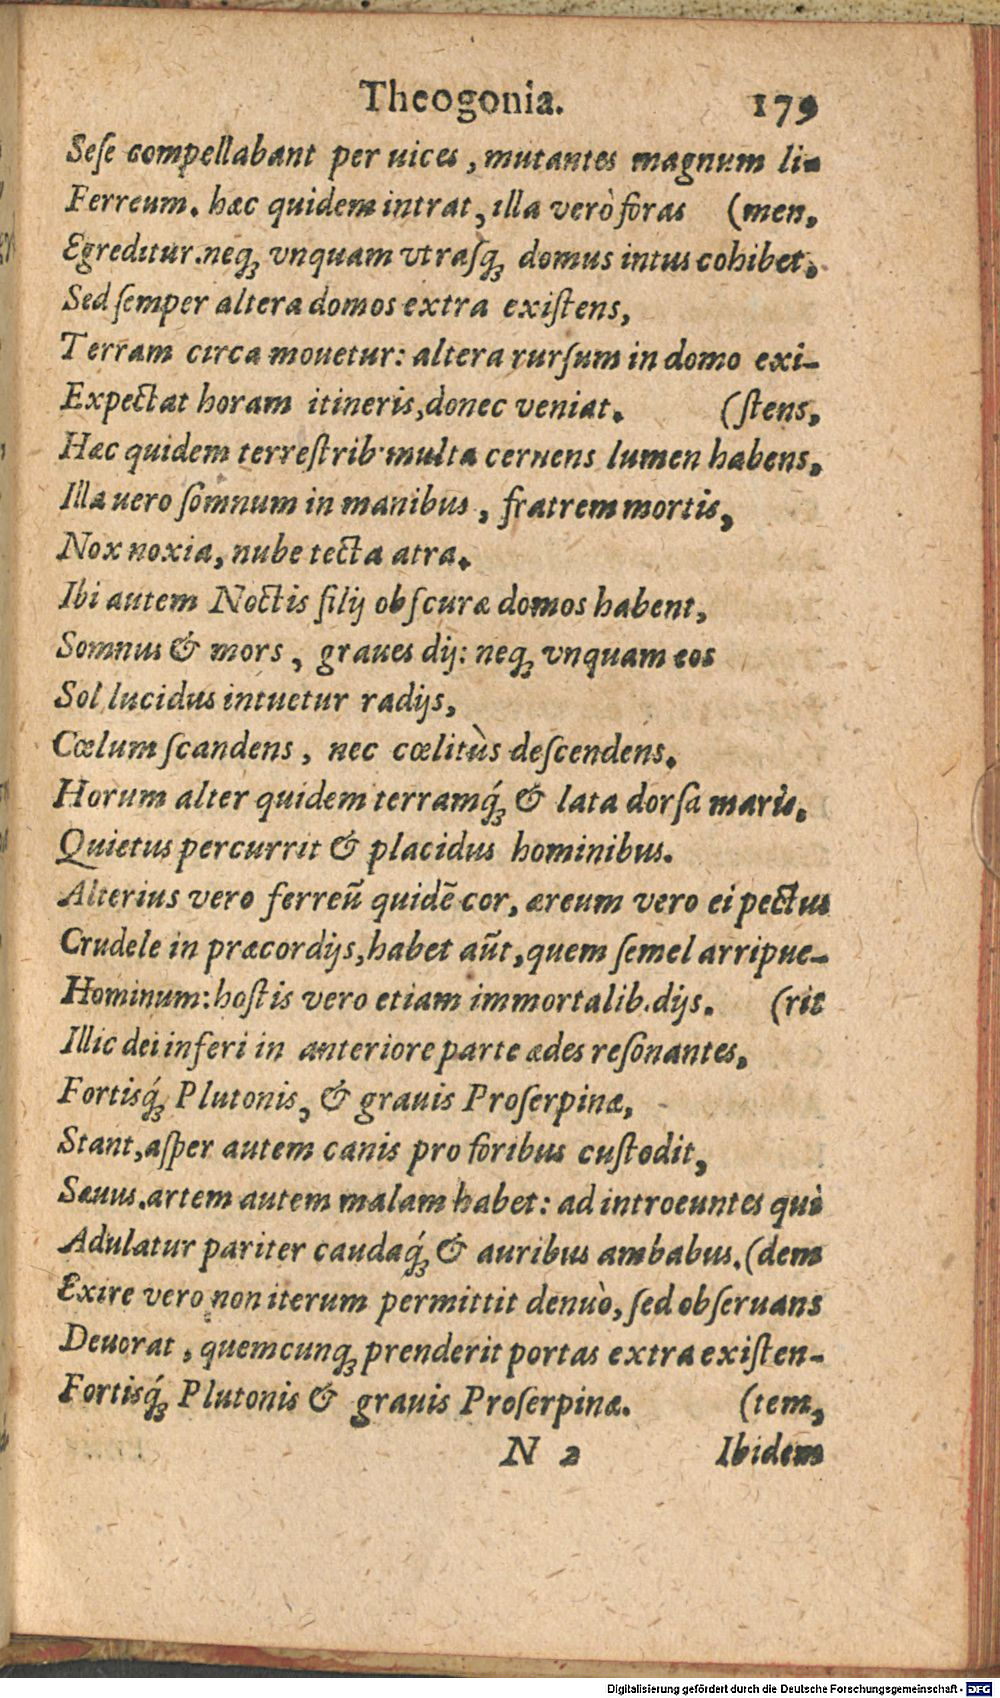 Theogonia. 179
Seſe compellabant per uices, mutantes magnum li-
Ferreum. hæc quidem intrat, illa verò foras (men,
Egreditur. neqꝫ vnquam vtraſqꝫ domus intus cohibet,
Sed ſemper altera domos extra exiſtens,
Terram circa mouetur: altera rurſum in domo exi-
Expectat horam itineris, donec veniat. (ſtens,
Hæc quidem terreſtrib. multa cernens lumen habens,
Illa uero ſomnum in manibus, fratrem mortis,
Nox noxia, nube tecta atra.
Ibi autem Noctis filij obſcuræ domos habent,
Somnus & mors, graues dij: neqꝫ vnquam eos
Sol lucidus intuetur radijs,
Cœlum ſcandens, nec cœlitùs deſcendens.
Horum alter quidem terramq́ꝫ & lata dorſa maris.
Quietus percurrit & placidus hominibus.
Alterius vero ferreū quidē cor, æreum vero ei pectus
Crudele in præcordijs, habet aūt, quem ſemel arripue-
Hominum: hoſtis vero etiam immortalib. dijs. (rit
Illic dei inferi in anteriore parte ædes reſonantes,
Fortisq́ꝫ Plutonis, & grauis Proſerpinæ,
Stant, aſper autem canis pro foribus cuſtodit,
Sæuus. artem autem malam habet: ad introeuntes qui
Adulatur pariter caudaq́ꝫ & auribus ambabus. (dem
Exire vero non iterum permittit denuò, ſed obſeruans
Deuorat, quemcunqꝫ prenderit portas extra exiſten-
Fortisq́ꝫ Plutonis & grauis Proſerpinæ. (tem,
N 2 Ibidem
Digitalisierung gefördert durch die Deutsche Forschungsgemeinschaft - DFG